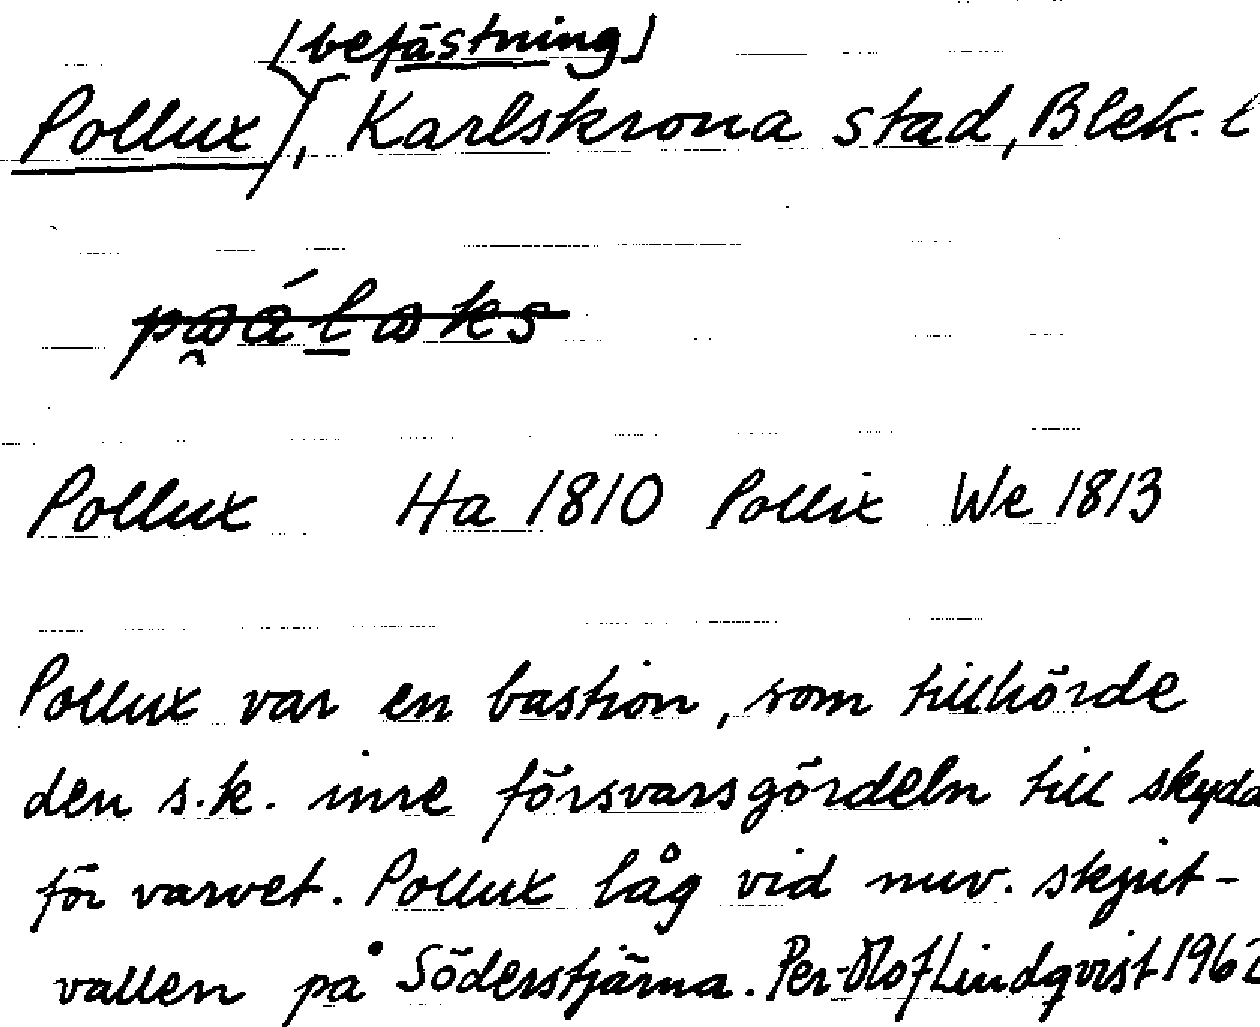 (befästning)
Pollux, Karlskrona stad, Blek. l
Pollux Ha 1810 Pollix We 1813
Pollux var en bastion, som tillhörde
den s.k. inre försvarsgördeln till skydd
för varvet. Pollux låg vid nuv. skjut-
vallen på Söderstjärna. Per-Olof Lindqvist 1962